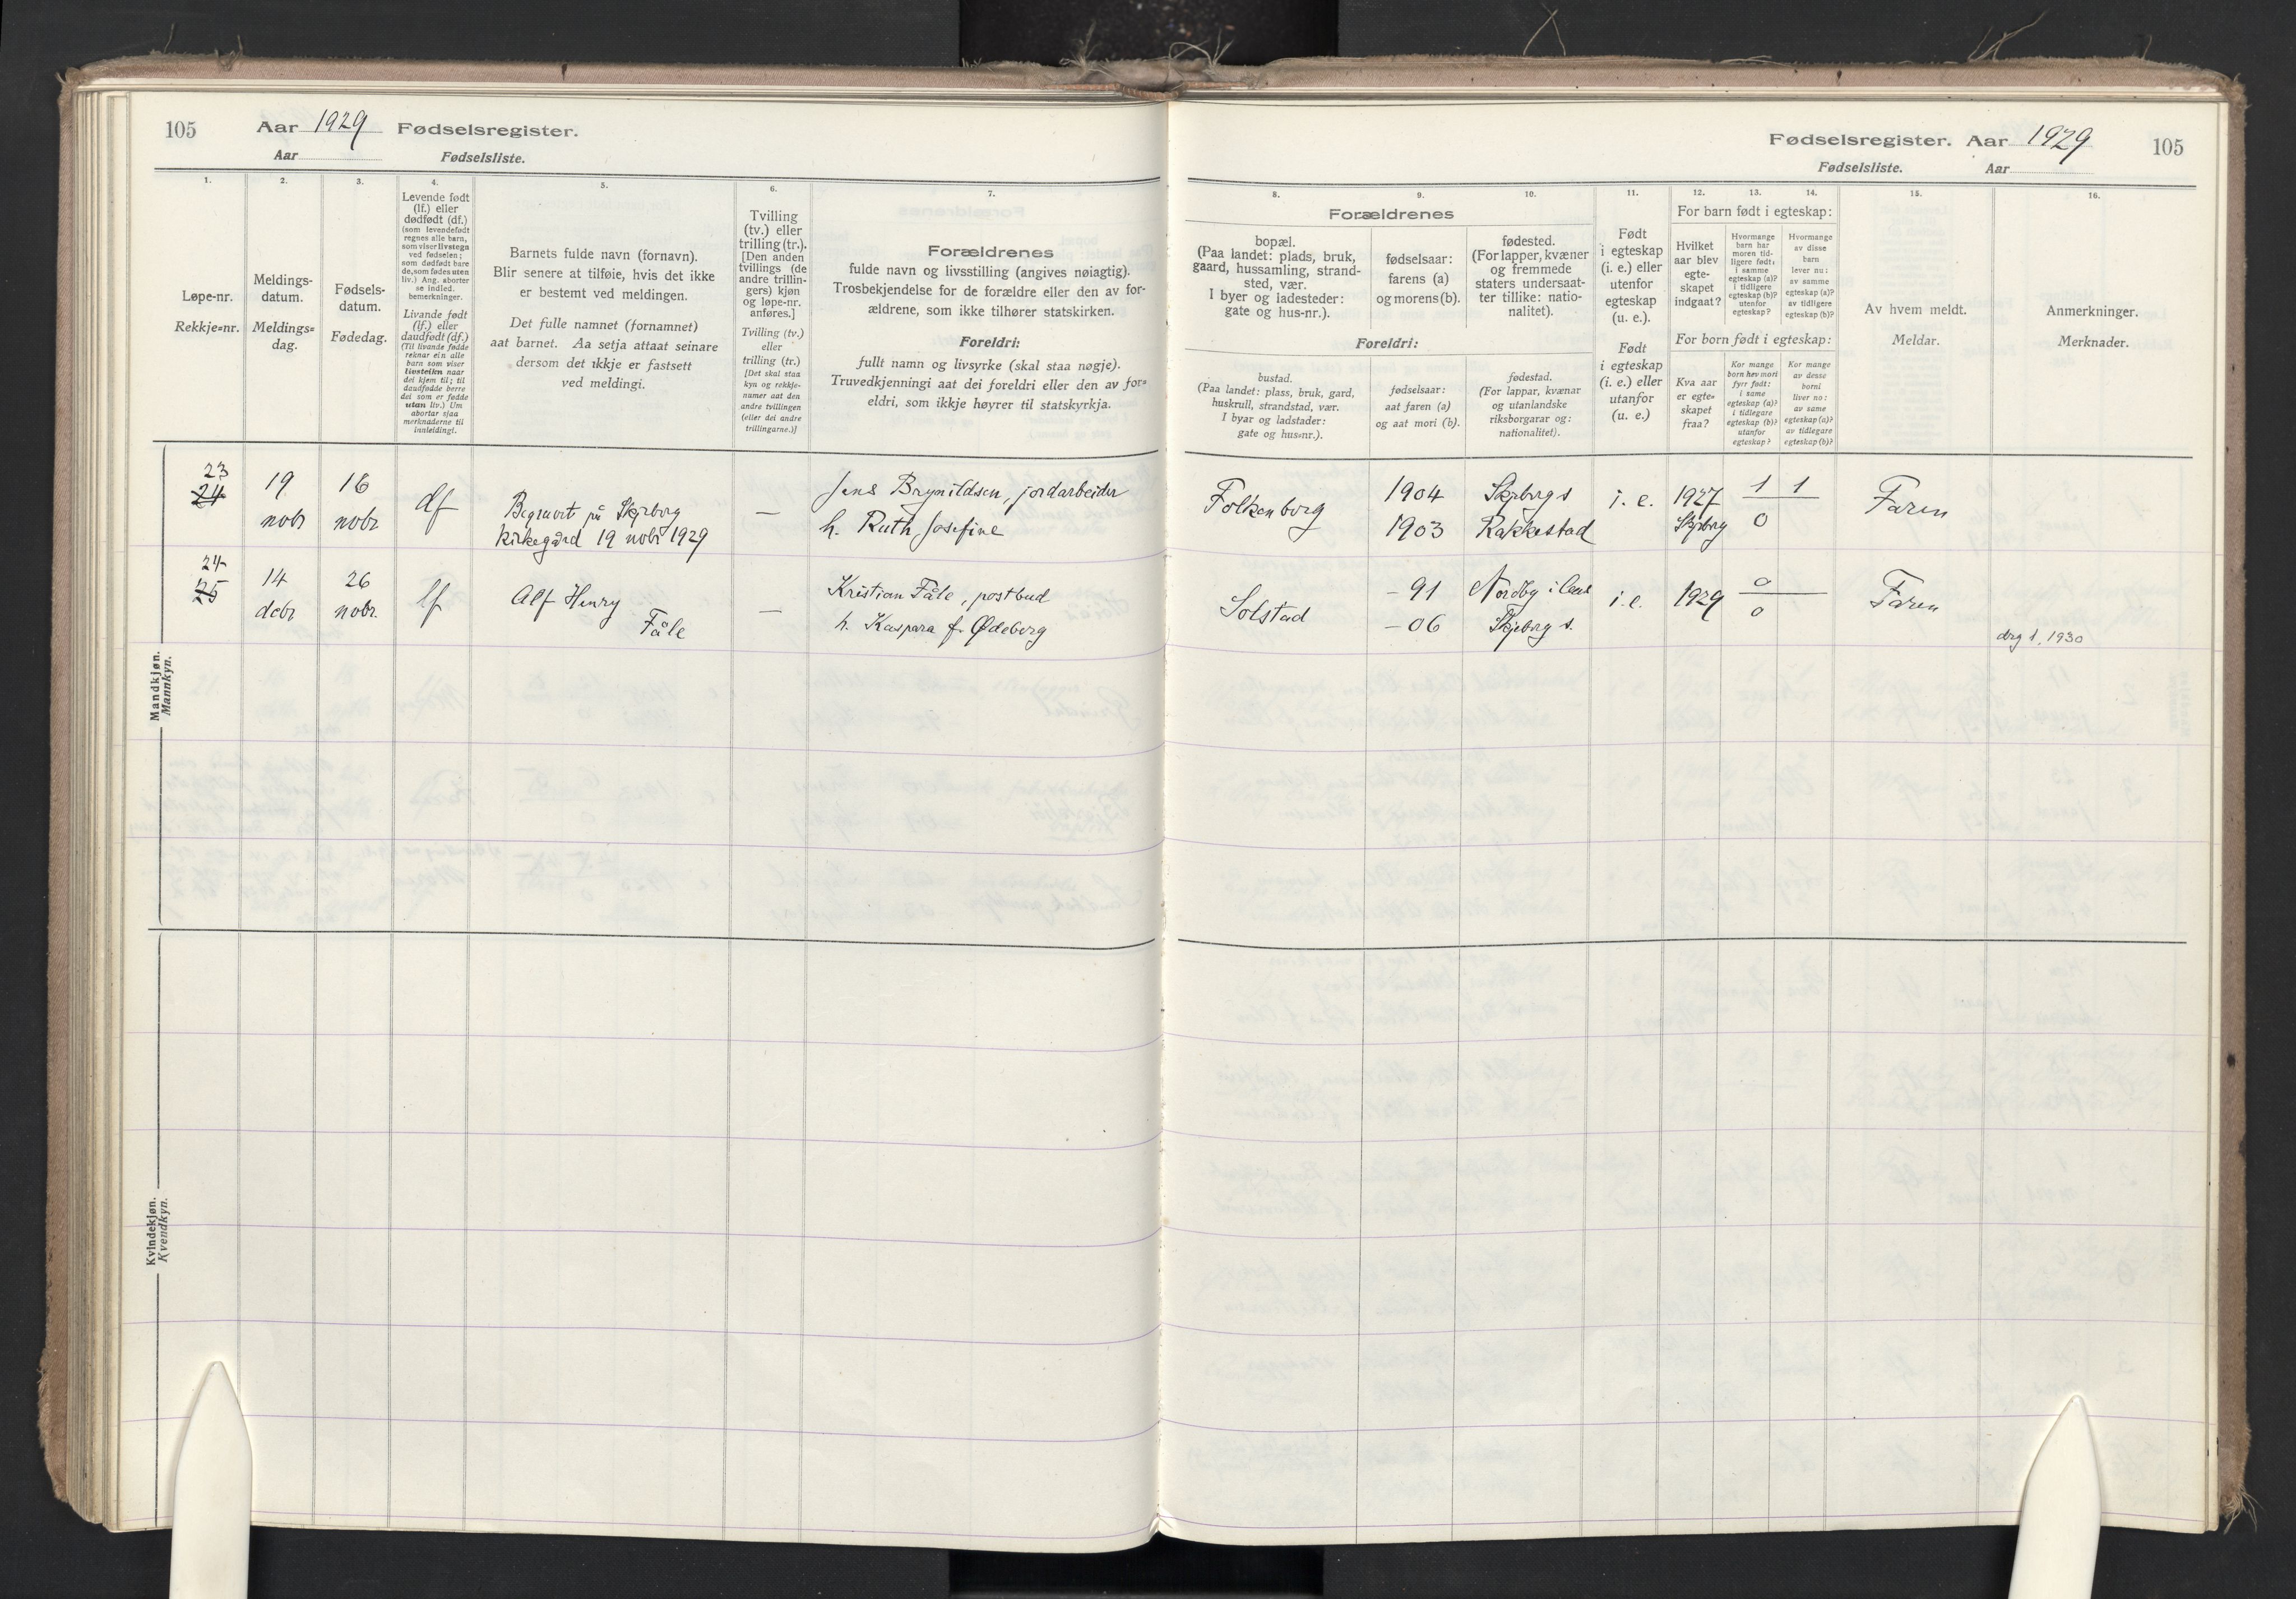 105 Aar 1929 Fødselsregister.
Aar Fødselsliste.
1. 2. 3. 4. 5. 6. 7.
Løpe-nr.
Rekkje=nr.
Meldings-
datum.
Meldings=
dag.
Fødsels-
datum.
Fødedag.
Levende født
(lf.) eller
dødfødt (df.)
(som levendefødt
regnes alle barn,
som viser livstegn
ved fødselen;
som dødfødt bare
de, som fødes uten
liv.) Ang. aborter
se indled.
bemerkninger.
Livande født
(lf.) eller
daudfødt (df.)
(Til livande fødde
reknar ein alle
barn som viser
livsteikn naar
dei kjem til; til
daudfødde berre
dei som er fødde
utan liv.) Um
abortar sjaa
merknaderne til
innleidingi.
Barnets fulde navn (fornavn).
Blir senere at tilføie, hvis det ikke
er bestemt ved meldingen.
Det fulle namnet (fornamnet)
aat barnet. Aa setja attaat seinare
dersom det ikkje er fastsett
ved meldingi.
Tvilling
(tv.) eller
trilling (tr.).
[Den anden
tvillings (de
andre trillin-
gers) kjøn
og løpe-nr.
anføres.]
Tvilling (tv.)
eller
trilling (tr.)
[Det skal staa
kyn og rekkje-
numer aat den
andre tvillingen
(eller dei andre
trillingarne.)]
Forældrenes
fulde navn og livsstilling (angives nøiagtig).
Trosbekjendelse for de forældre eller den av for-
ældrene, som ikke tilhører statskirken.
Foreldri:
fullt namn og livsyrke (skal staa nøgje).
Truvedkjenningi aat dei foreldri eller den av for=
eldri, som ikkje høyrer til statskyrkja.
Mandkjøn.
Mannkyn.
23
24
19
nobr
16
nobr
df
Begravet på Skjeberg
kirkegård 19 nobr 1929
—
Jens Brynildsen, jordarbeider
h. Ruth Josefine
24
25
14
debr
26
nobr.
lf
Alf Henry
Fåle
—
Kristian Fåle, postbud
h. Kaspara f. Ødeberg
Kvindekjøn.
Kvendkyn.
Fødselsregister. Aar 1929 105
Fødselsliste. Aar
8. 9. 10. 11. 12. 13. 14. 15. 16.
Forældrenes
bopæl.
(Paa landet: plads, bruk,
gaard, hussamling, strand-
sted, vær.
I byer og ladesteder:
gate og hus-nr.).
fødselsaar:
farens (a)
og morens (b).
fødested.
(For lapper, kvæner
og fremmede
staters undersaat-
ter tillike: natio-
nalitet).
Foreldri:
bustad.
(Paa landet: plass, bruk, gard,
huskrull, strandstad, vær.
I byar og ladstader:
gate og hus=nr.).
fødselsaar:
aat faren (a)
og aat mori (b).
fødestad.
(For lappar, kvænar
og utanlandske
riksborgarar og:
nationalitet).
Født
i egteskap
(i. e.) eller
utenfor
egteskap
(u. e.).
Født
i egteskap
(i. e.) eller
utanfor
(u. e.)
For barn født i egteskap:
Hvilket
aar blev
egte-
skapet
indgaat?
Hvormange
barn har
moren tid-
ligere født:
i samme
egteskap (a)?
i tidligere
egteskap (b)?
utenfor
egteskap?
Hvormange
av disse
barn
lever nu:
av samme
egteskap (a)?
av tidligere
egteskap (b)?
For born født i egteskap:
Kva aar
er egte=
skapet
fraa?
Kor mange
born hev mori
fyrr født:
i same
egteskap (a)?
i tidlegare
egteskap (b)?
utanfor
egteskap?
Kor mange
av desse
borni
liver no:
av same
egteskap (a)?
av tidlegare
egteskap (b)?
Av hvem meldt.
Meldar.
Anmerkninger.
Merknader.
Folkenborg
1904
1903
Skjeberg s
Rakkestad
i. e.
1927
Skjeberg
1 1
0
Faren
Solstad
- 91
- 06
Nordby i
Skjeberg s.
i. e.
1929
0
0
Faren
1930